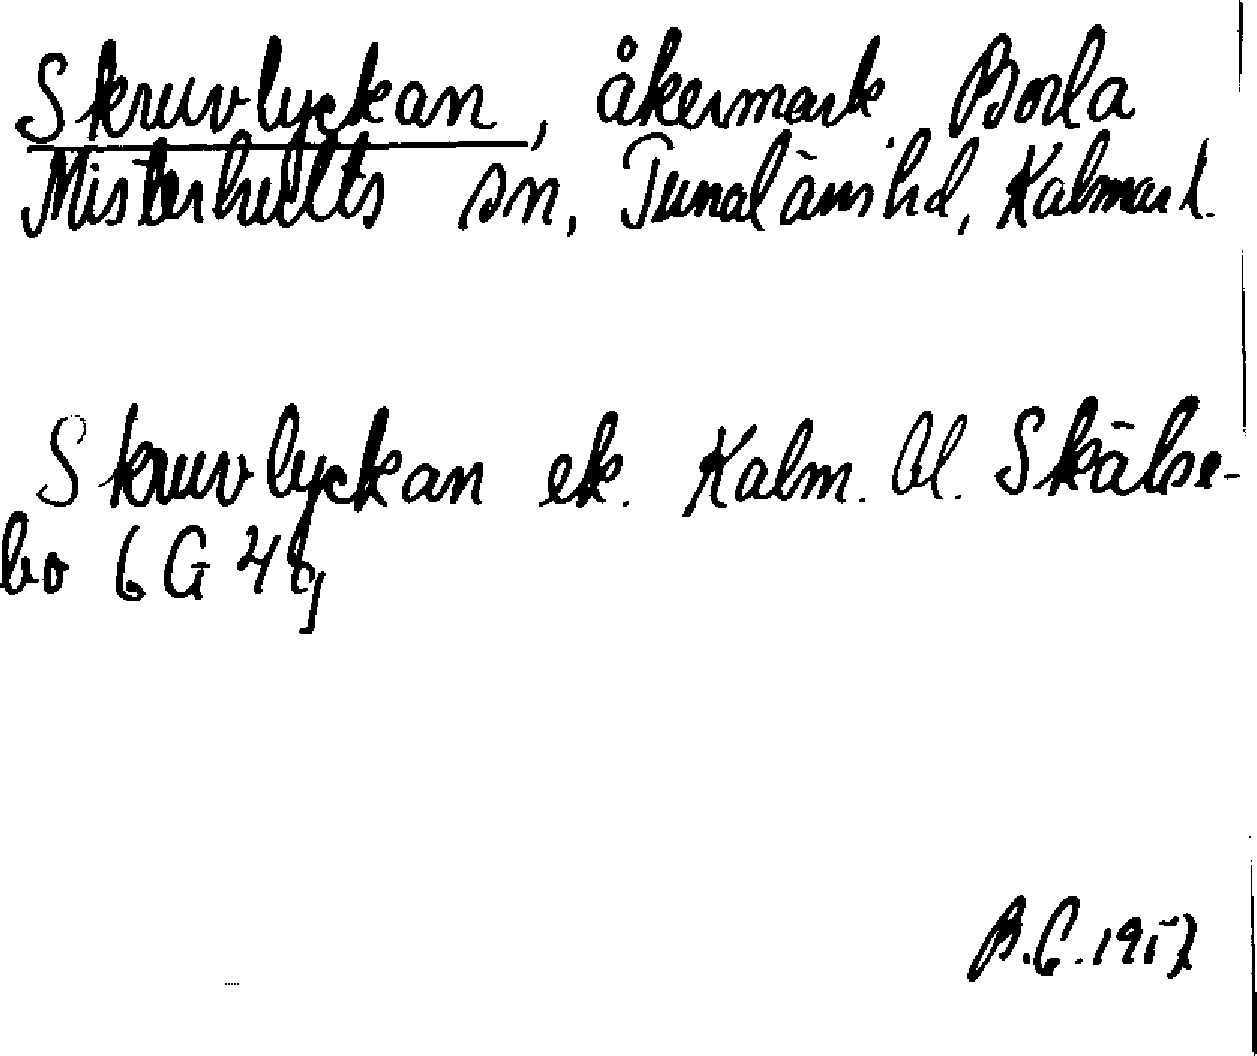 Skruvlyckan, åkermark, Borla
Misterhults sn, Tunaläns hd, Kalmar l.
Skruvlyckan ek. Kalm. bl. Skälse-
bo 6 G 4 g
B.G. 1957